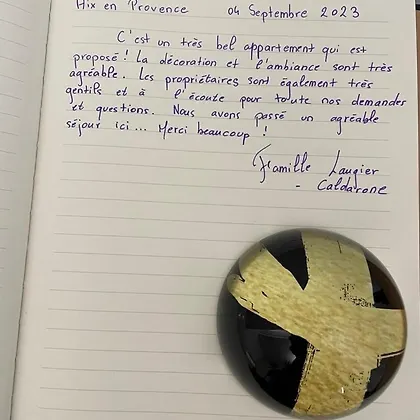 Aix en Provence 04 Septembre 2023
C'est un très bel appartement qui est
proposé ! La décoration et l'ambiance sont très
agréable. Les propriétaires sont également très
gentils et à l'écoute pour toute nos demandes
et questions. Nous avons passé un agréable
séjour ici... Merci beaucoup !
Famille Laugier
- Caldarone